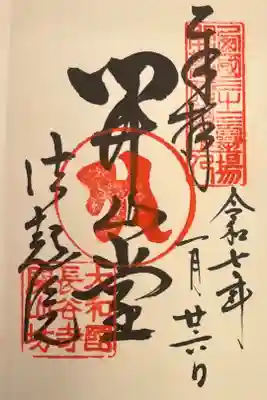 奉拝
西國三十三霊場
令和七年
一月廿六日
開山堂
法起院
大和國
長谷寺
開山坊